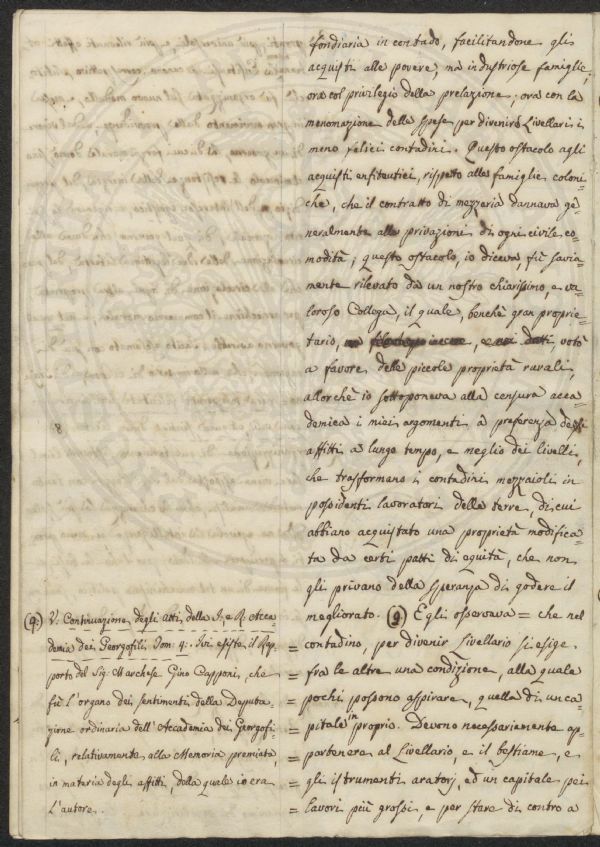 fondiaria in contado, facilitandone gli
acquisti alle povere, ma industriose famiglie,
ora col privilegio della prelazione, ora con la
menomazione delle spese per divenire Livellarii i
meno felici contadini. Questo ostacolo agli
acquisti enfiteutici, rispetto alle famiglie coloni=
che, che il contratto di mezzeria dannava ge=
neralmente alle privazioni di ogni civile co=
modità; questo ostacolo, io diceva, fù savia=
mente rilevato da un nostro chiarissimo, e va=
loroso Collega, il quale, benchè gran proprie=
tario, votò
a favore delle piccole proprietà rurali,
allorchè io sottoponeva alla censura acca=
demica i miei argomenti a preferenza degli
affitti a lungo tempo, e meglio dei livelli,
che trasformano i contadini mezzaioli in
possidenti lavoratori delle terre, di cui
abbiano acquistato una proprietà modifica=
ta da certi patti di equità, che non
gli privano della speranza di godere il
megliorato. (9) Egli osservava = che nel
= contadino, per divenir Livellario si esige
= fra le altre una condizione, alla quale
= pochi possono aspirare, quella di un ca=
= pitale in proprio. Devono necessariamente ap=
= partenere al Livellario, e il bestiame, e
= gli istrumenti aratorj, ed un capitale pei
= lavori più grossi, e per stare di contro a
(9) V. Continuazione degli Atti della I. e R. Acca
demia dei Georgofili. Tom: 4: Ivi esiste il Rap=
porto del Sig: Marchese Gino Capponi, che
fù l'organo dei sentimenti della Deputa=
zione ordinaria dell'Accademia dei Georgofi=
li, relativamente alla Memoria premiata
in materia degli affitti, della quale io era
l'autore.